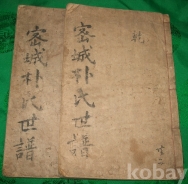 密城朴氏世譜
密城朴氏世譜
乾
kobay